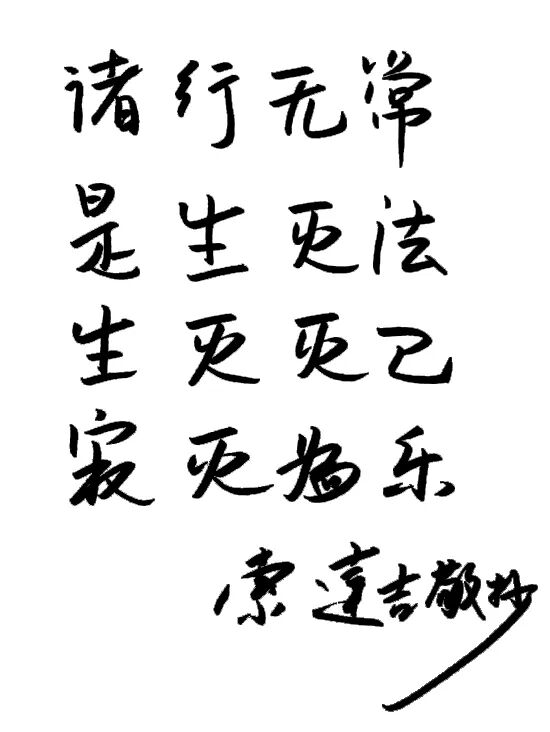 诸行无常
是生灭法
生灭灭已
寂灭為乐
索達吉敬抄